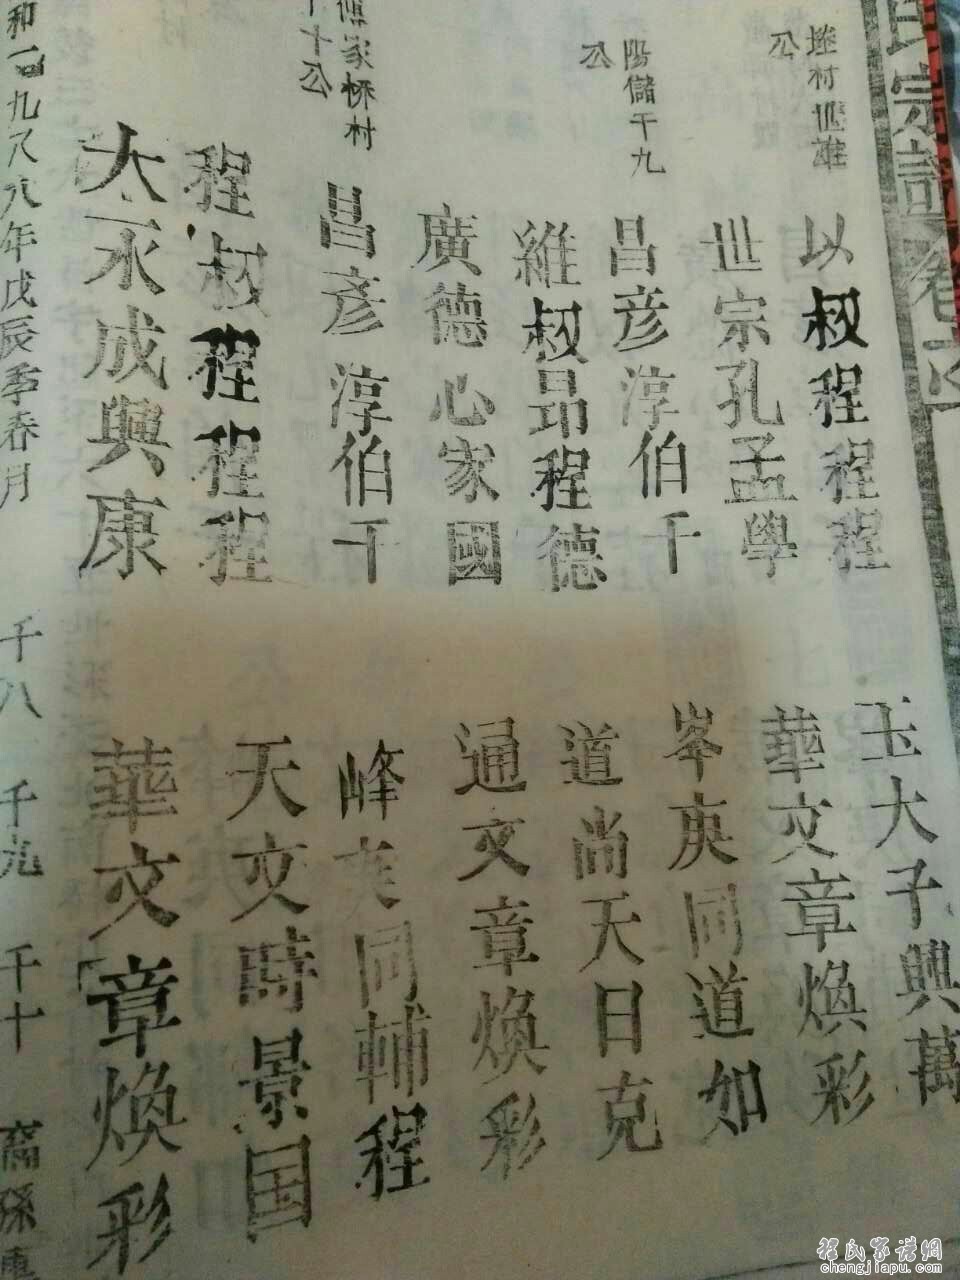 氏宗譜卷之
㘵村世雄
公
以叔程程程
玉大子興萬
世宗孔孟學
華文章煥彩
陽儲千九
公
昌彦淳伯千
岑庚同道如
維叔昂程德
道尚天日克
廣德心家國
通文章煥彩
傅家桥村
千十公
昌彦淳伯千
峰夫同輔程
程叔程程程
天文時景国
太永成興康
華文章煥彩
和一九八八年戊辰季春月
千八 千九 千十 裔孫重
程氏家谱網
chengjiapu.com